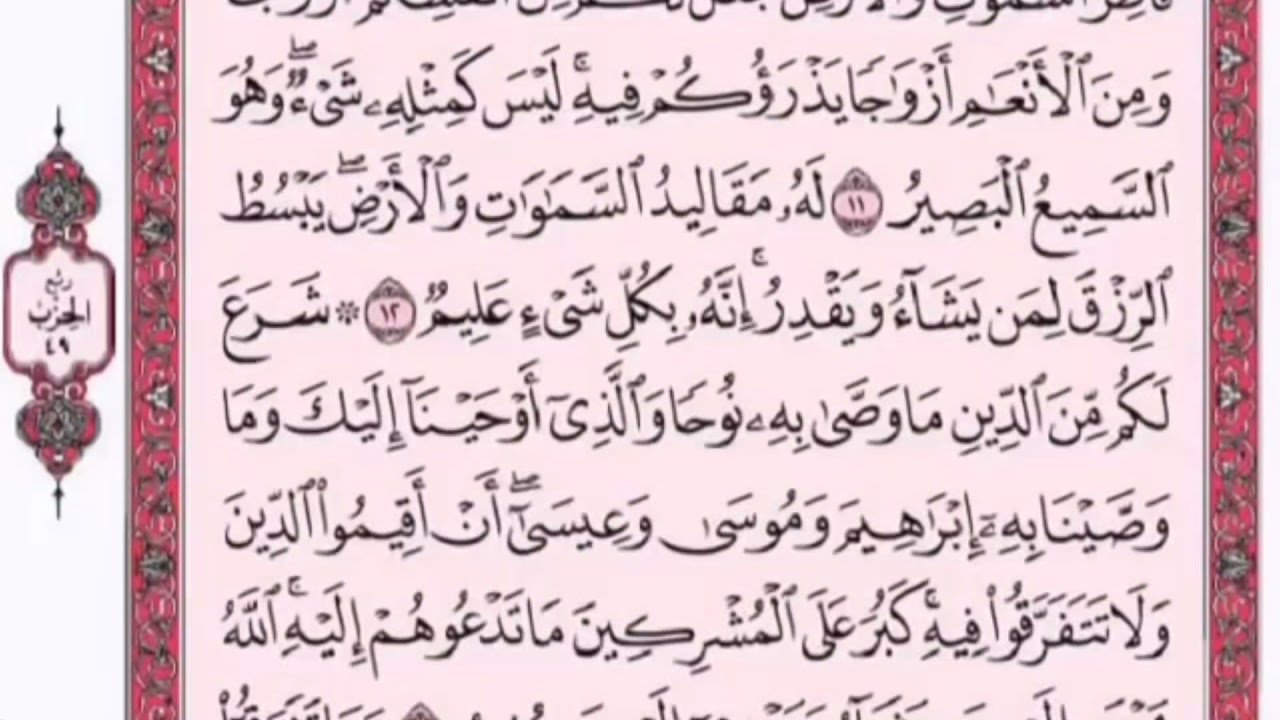 فَاطِرُ ٱلسَّمَٰوَٰتِ وَٱلْأَرْضِ جَعَلَ لَكُم مِّنْ أَنفُسِكُمْ أَزْوَٰجًا
وَمِنَ ٱلْأَنْعَٰمِ أَزْوَٰجًا يَذْرَؤُكُمْ فِيهِ ۚ لَيْسَ كَمِثْلِهِۦ شَىْءٌ ۖ وَهُوَ
ٱلسَّمِيعُ ٱلْبَصِيرُ ١١ لَهُۥ مَقَالِيدُ ٱلسَّمَٰوَٰتِ وَٱلْأَرْضِ ۖ يَبْسُطُ
ٱلرِّزْقَ لِمَن يَشَآءُ وَيَقْدِرُ ۚ إِنَّهُۥ بِكُلِّ شَىْءٍ عَلِيمٌ ١٢ ۞ شَرَعَ
لَكُم مِّنَ ٱلدِّينِ مَا وَصَّىٰ بِهِۦ نُوحًا وَٱلَّذِىٓ أَوْحَيْنَآ إِلَيْكَ وَمَا
وَصَّيْنَا بِهِۦٓ إِبْرَٰهِيمَ وَمُوسَىٰ وَعِيسَىٰٓ ۖ أَنْ أَقِيمُوا۟ ٱلدِّينَ
وَلَا تَتَفَرَّقُوا۟ فِيهِ ۚ كَبُرَ عَلَى ٱلْمُشْرِكِينَ مَا تَدْعُوهُمْ إِلَيْهِ ۚ ٱللَّهُ
ربع
الحزب
٤٩